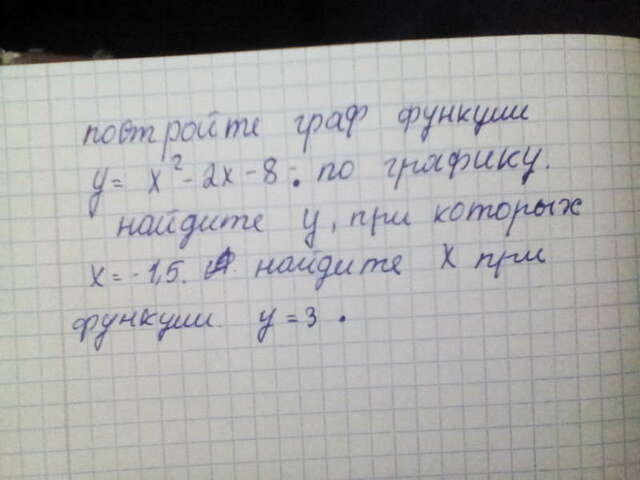 постройте граф функции
y = x² - 2x - 8. по графику.
найдите y, при которых
x = - 1,5. найдите x при
функции y = 3.